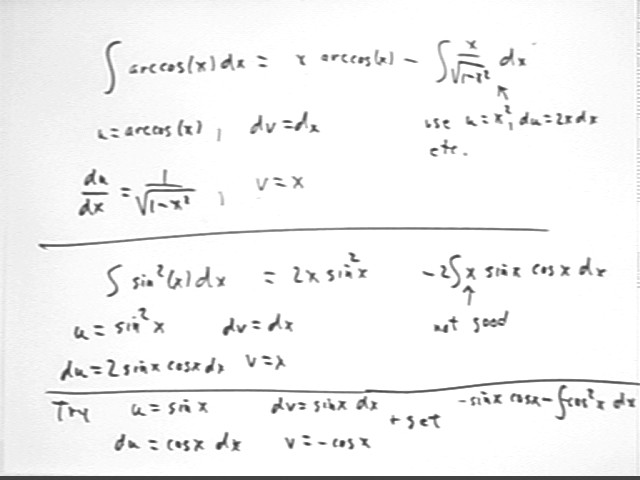 ∫ arccos(x) dx = x arccos(x) - ∫ x/√(1-x²) dx
u = arccos(x), dv = dx
use u = x², du = 2x dx
etc.
du/dx = 1/√(1-x²), v = x
∫ sin²(x) dx = 2x sin²x - 2∫ x sin x cos x dx
u = sin²x dv = dx
not good
du = 2 sin x cos x dx v = x
Try u = sin x dv = sin x dx + get -sin x cos x - ∫ cos²x dx
du = cos x dx v = -cos x